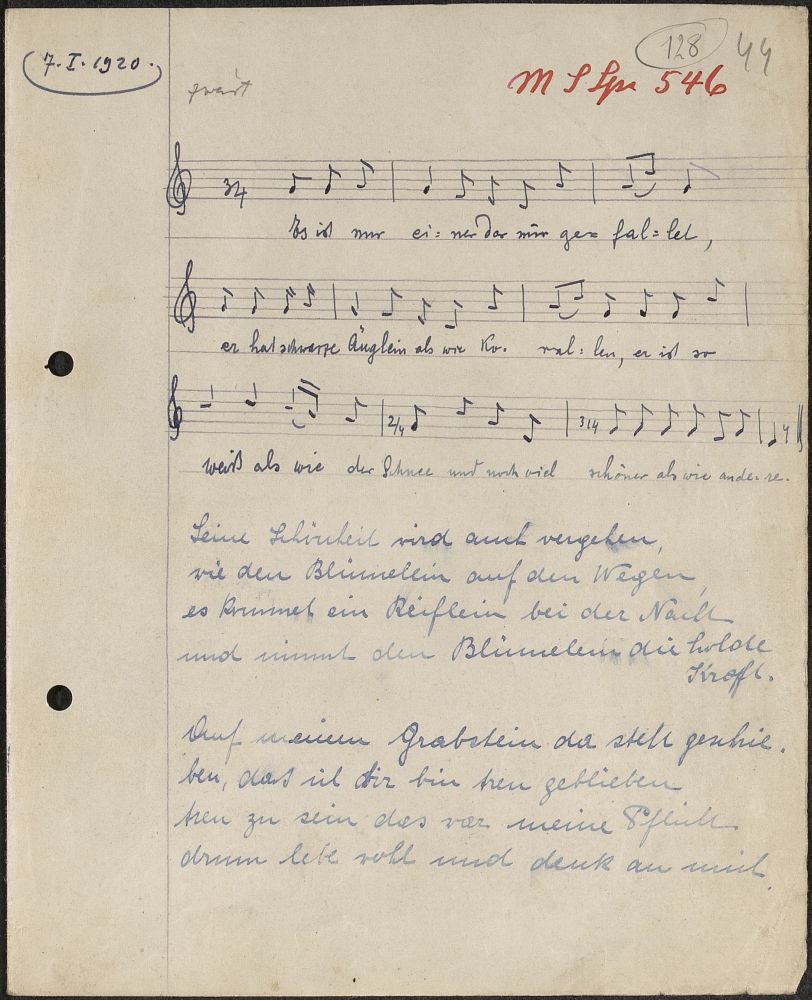 7. I. 1920.
128 44
M S Spr 546
3/4
Es ist nur ei = ner der mir ge = fal = let,
er hat schwarze Äuglein als wie Ko. ral = len, er ist so
2/4 3/4
weiß als wie der Schnee und noch viel schöner als wie ande. re.
Seine Schönheit wird auch vergehen,
wie den Blümelein auf den Wegen,
es kommet ein Reiflein bei der Nacht
und nimmt den Blümelein die holde
Kraft.
Auf meinem Grabstein da steht geschrie.
ben, daß ich dir bin treu geblieben
treu zu sein das war meine Pflicht
drum lebe wohl und denk an mich.